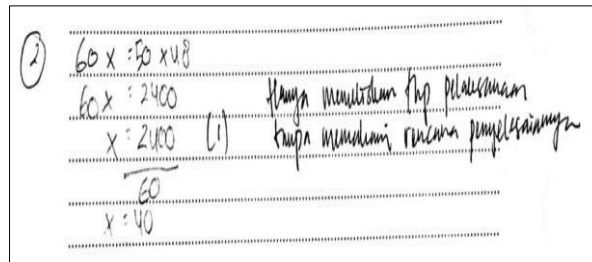 ② 60x = 50 x 48
60x = 2400
x = 2400 (1)
60
x = 40
Hanya menuliskan thp pelaksanaan
tanpa memahami rencana penyelesaiannya